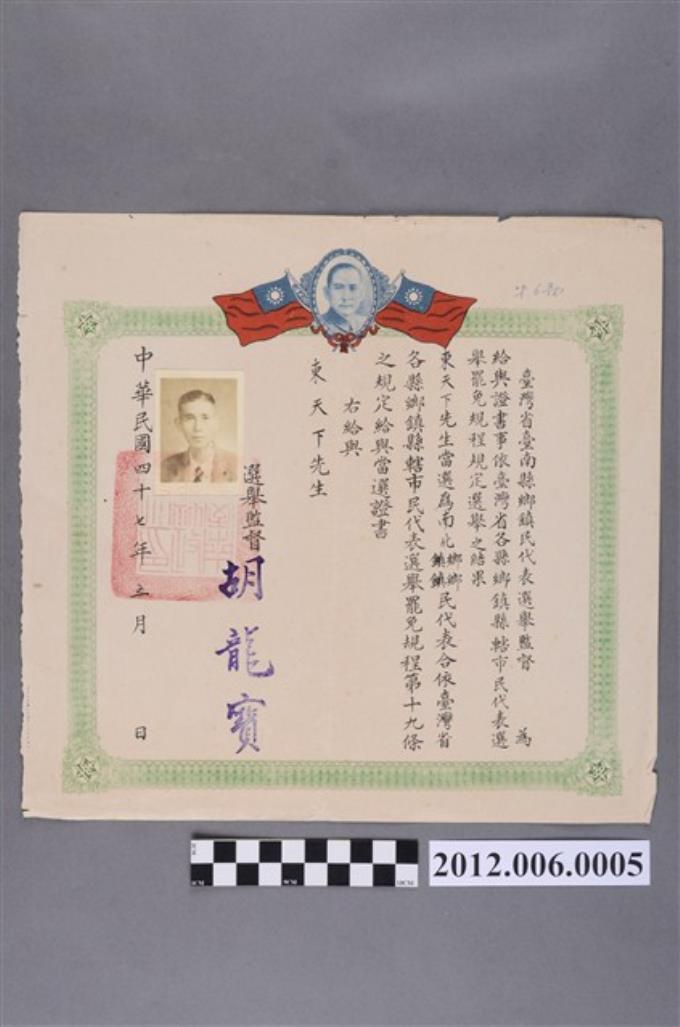 臺灣省臺南縣鄉鎮民代表選舉監督 為
給與證書事依臺灣省各縣鄉鎮縣轄市民代表選
舉罷免規程規定選舉之結果
東天下先生當選爲南北鄉鎮鄉鎮民代表合依臺灣省
各縣鄉鎮縣轄市民代表選舉罷免規程第十九條
之規定給與當選證書
右給與
東天下先生
選舉監督 胡龍寶
中華民國四十七年 五月 日
2012.006.0005